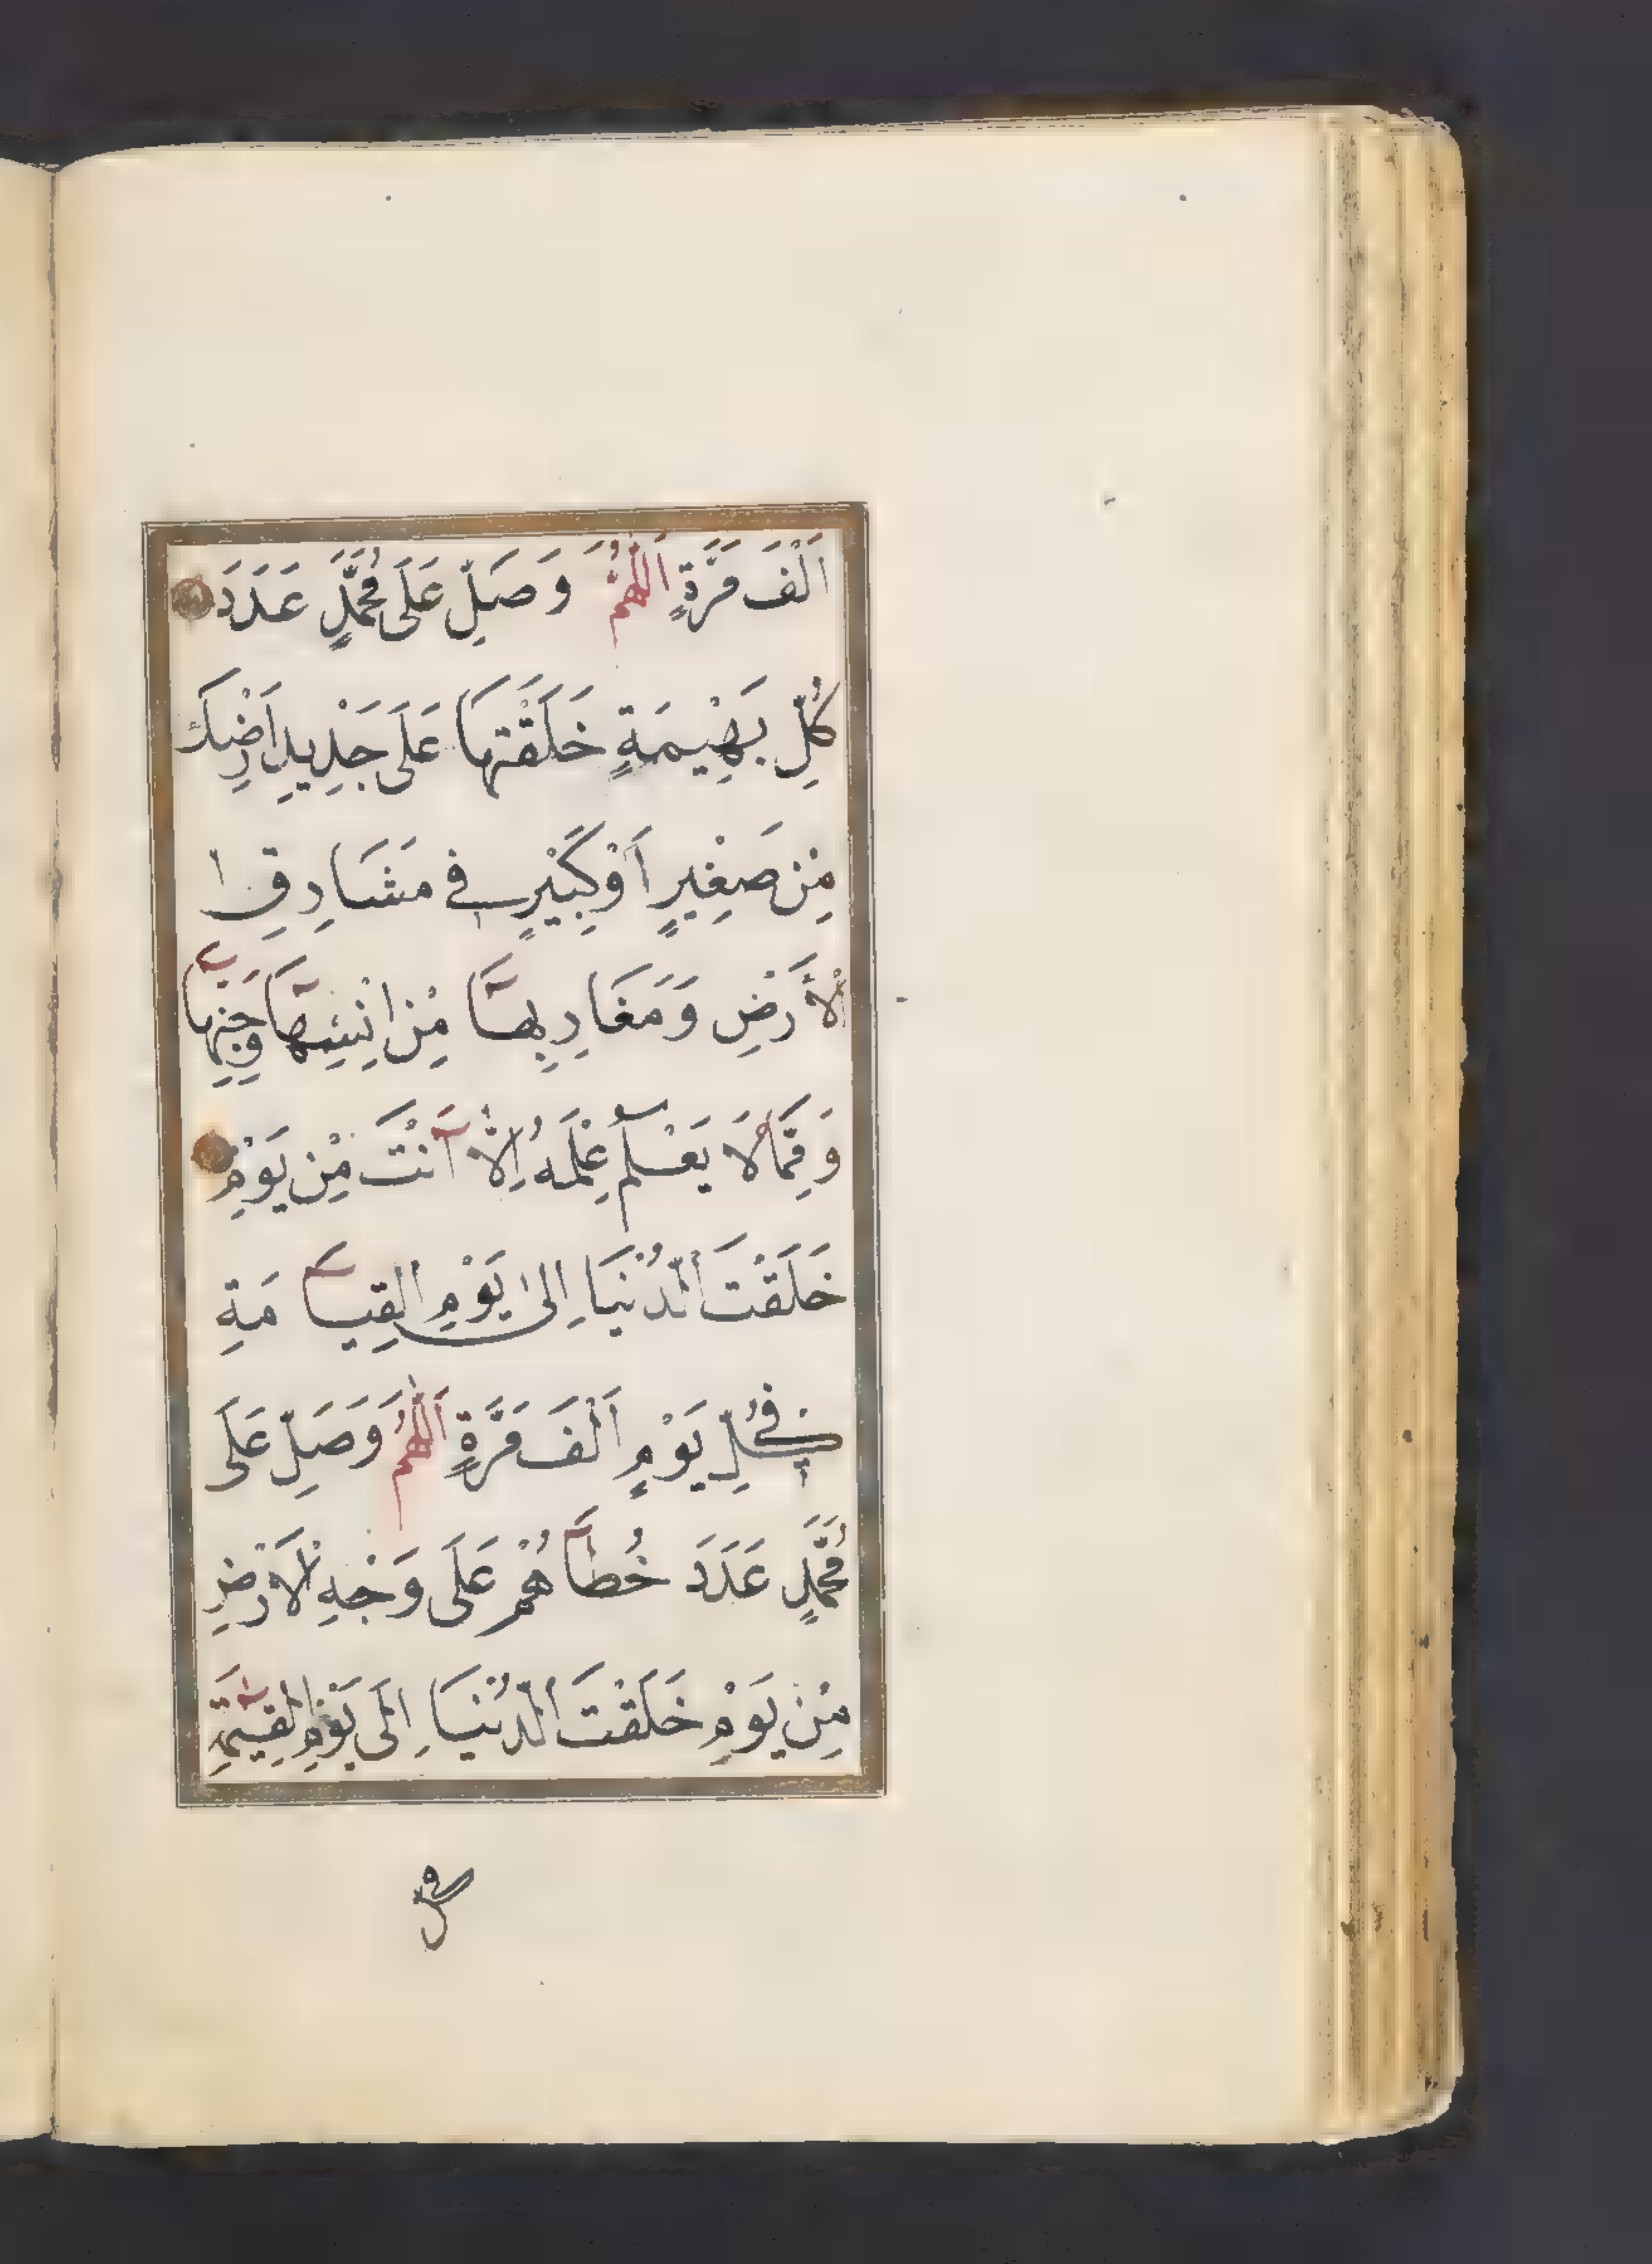 اَلْفَ مَرَّةٍ اَللّٰهُمَّ وَصَلِّ عَلَى مُحَمَّدٍ عَدَدَ
كُلِّ بَهِيْمَةٍ خَلَقْتَهَا عَلَى جَدِيدِ اَرْضِكَ
مِنْ صَغِيْرٍ اَوْ كَبِيْرٍ فِى مَشَارِقِ ا
لْاَرْضِ وَمَغَارِبِهَا مِنْ اِنْسِهَا وَجِنِّهَا
وَمِمَّا لَا يَعْلَمُ عِلْمَهُ اِلَّا اَنْتَ مِنْ يَوْمِ
خَلَقْتَ الدُّنْيَا اِلىٰ يَوْمِ الْقِيَا مَةِ
فِى كُلِّ يَوْمٍ اَلْفَ مَرَّةٍ اَللّٰهُمَّ وَصَلِّ عَلَى
مُحَمَّدٍ عَدَدَ خُطَاهُمْ عَلَى وَجْهِ الْاَرْضِ
مِنْ يَوْمِ خَلَقْتَ الدُّنْيَا اِلَى يَوْمِ الْقِيٰمَةِ
فى كل